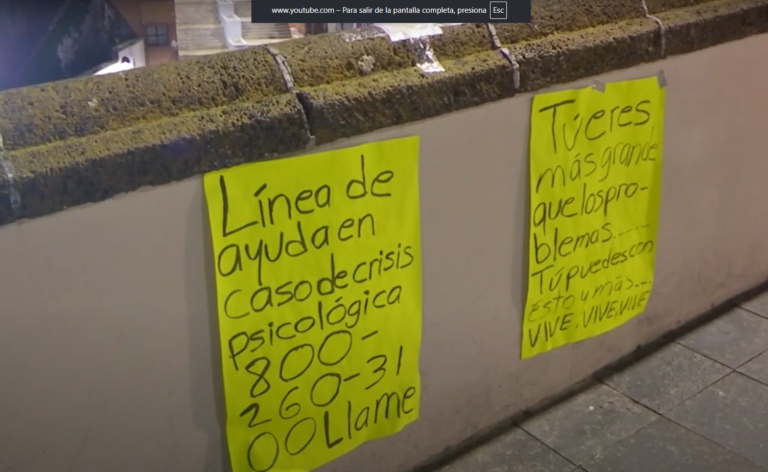 www.youtube.com – Para salir de la pantalla completa, presiona Esc
Línea de
ayuda en
caso de crisis
psicológica
800-
260-31
00 Llame
Tú eres
más grande
que los pro-
blemas......
Tú puedes con
esto y más...
VIVE, VIVE, VIVE